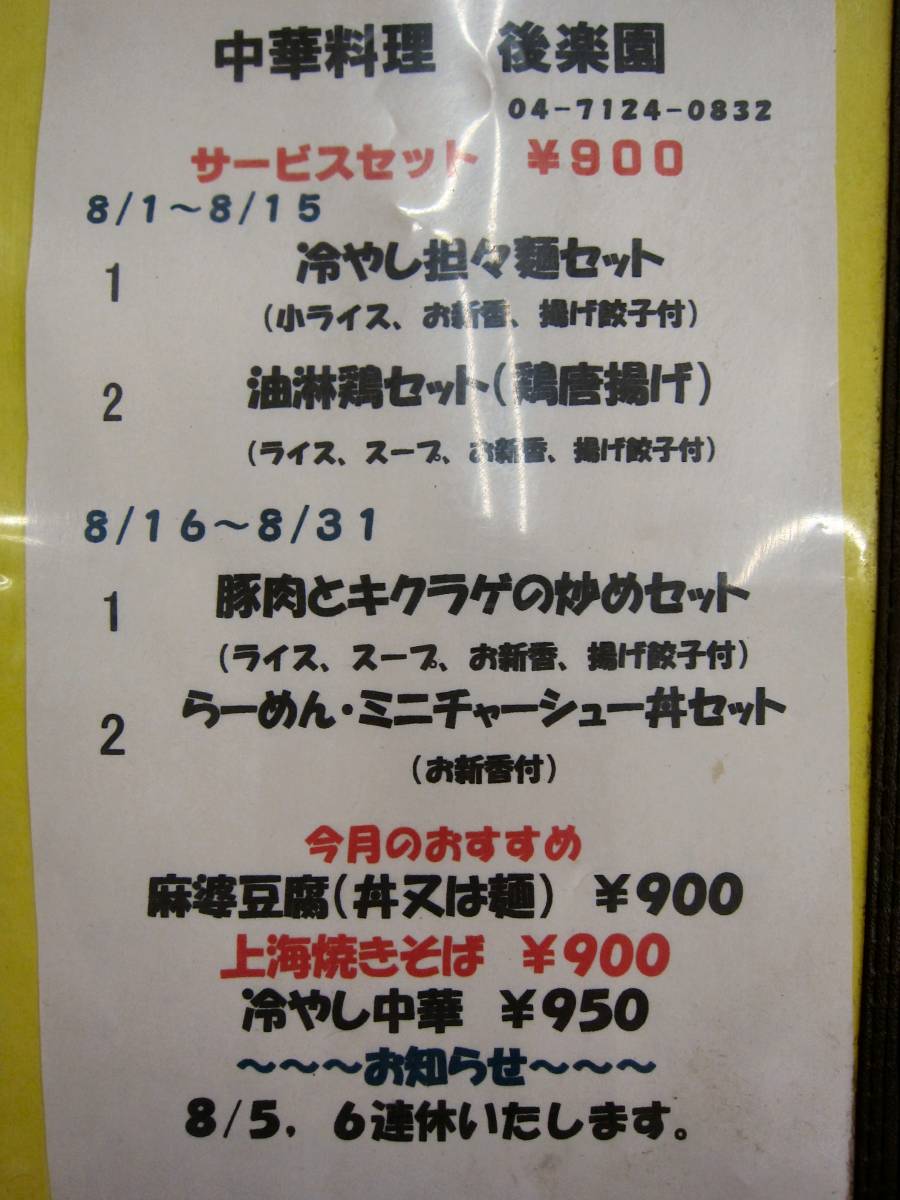 中華料理　後楽園
04-7124-0832
サービスセット　￥900
8/1～8/15
1　冷やし担々麺セット
（小ライス、お新香、揚げ餃子付）
2　油淋鶏セット（鶏唐揚げ）
（ライス、スープ、お新香、揚げ餃子付）
8/16～8/31
1　豚肉とキクラゲの炒めセット
（ライス、スープ、お新香、揚げ餃子付）
2　らーめん・ミニチャーシュー丼セット
（お新香付）
今月のおすすめ
麻婆豆腐（丼又は麺）　￥900
上海焼きそば　￥900
冷やし中華　￥950
～～～お知らせ～～～
8/5，6連休いたします。